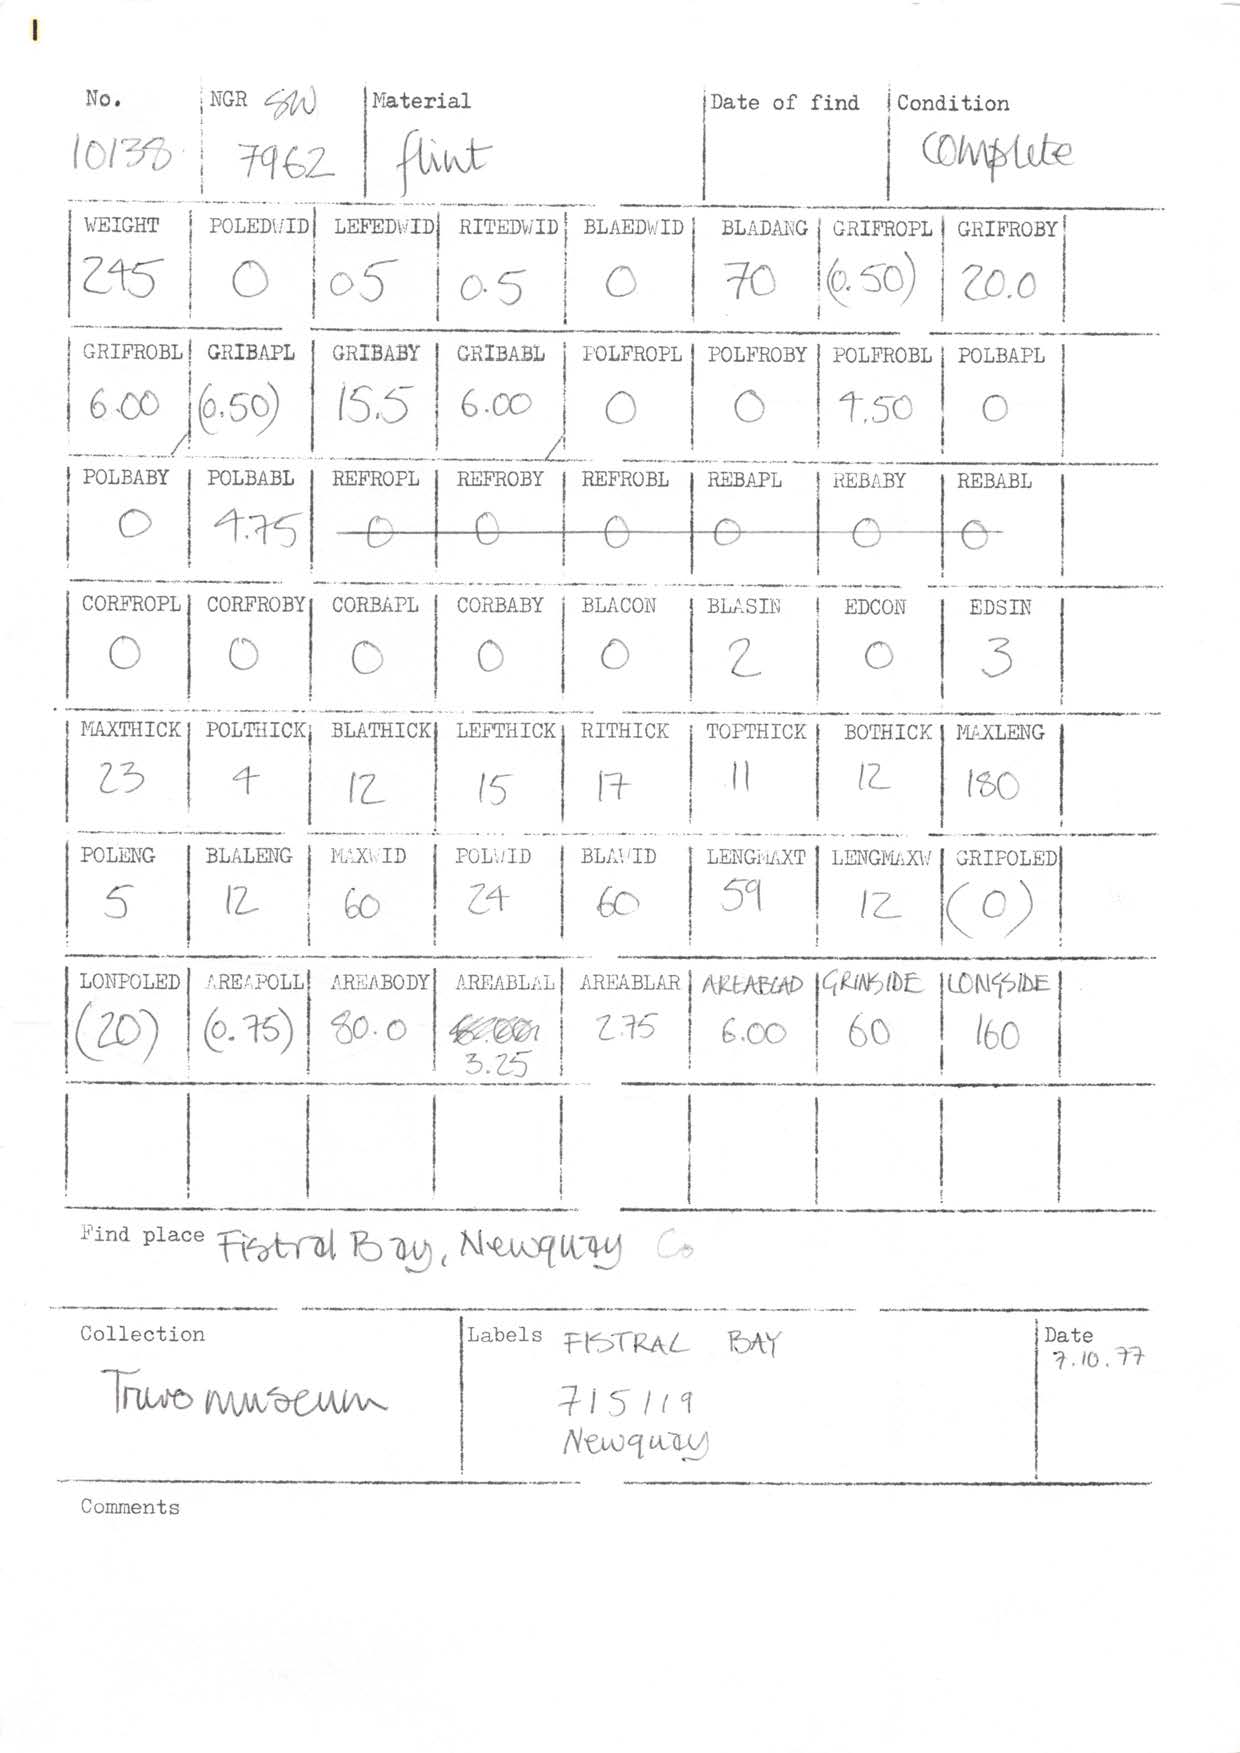 1
No. NGR SW Material Date of find Condition
10138 7962 flint complete
WEIGHT POLEDWID LEFEDWID RITEDWID BLAEDWID BLADANG GRIFROPL GRIFROBY
245 0 05 0.5 0 70 (0.50) 20.0
GRIFROBL GRIBAPL GRIBABY GRIBABL POLFROPL POLFROBY POLFROBL POLBAPL
6.00 (0.50) 15.5 6.00 0 0 4.50 0
POLBABY POLBABL REFROPL REFROBY REFROBL REBAPL REBABY REBABL
0 4.75 0 0 0 0 0 0
CORFROPL CORFROBY CORBAPL CORBABY BLACON BLASIN EDCON EDSIN
0 0 0 0 0 2 0 3
MAXTHICK POLTHICK BLATHICK LEFTHICK RITHICK TOPTHICK BOTHICK MAXLENG
23 4 12 15 17 11 12 180
POLENG BLALENG MAXWID POLWID BLAWID LENGMAXT LENGMAXW GRIPOLED
5 12 60 24 60 59 12 (0)
LONPOLED AREAPOLL AREABODY AREABLAL AREABLAR AREABLAD GRINSIDE LONGSIDE
(20) (0.75) 80.0 2.75 6.00 60 160
3.25
Find place Fistral Bay, Newquay Co
Collection Labels FISTRAL BAY Date
7.10.77
Truro museum 715119
Newquay
Comments